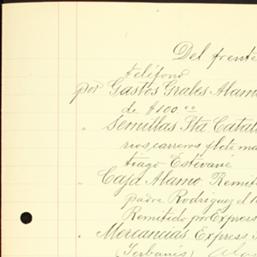 Del frente
teléfono
por Gastos Grales Alamo
de $100.00
" Semillas Sta Catal
rios, carreros, flete ma
tiago Estévané
" Caja Alamo Remit
padre Rodriguez el 1
Remitido por Express
" Mercancias Express